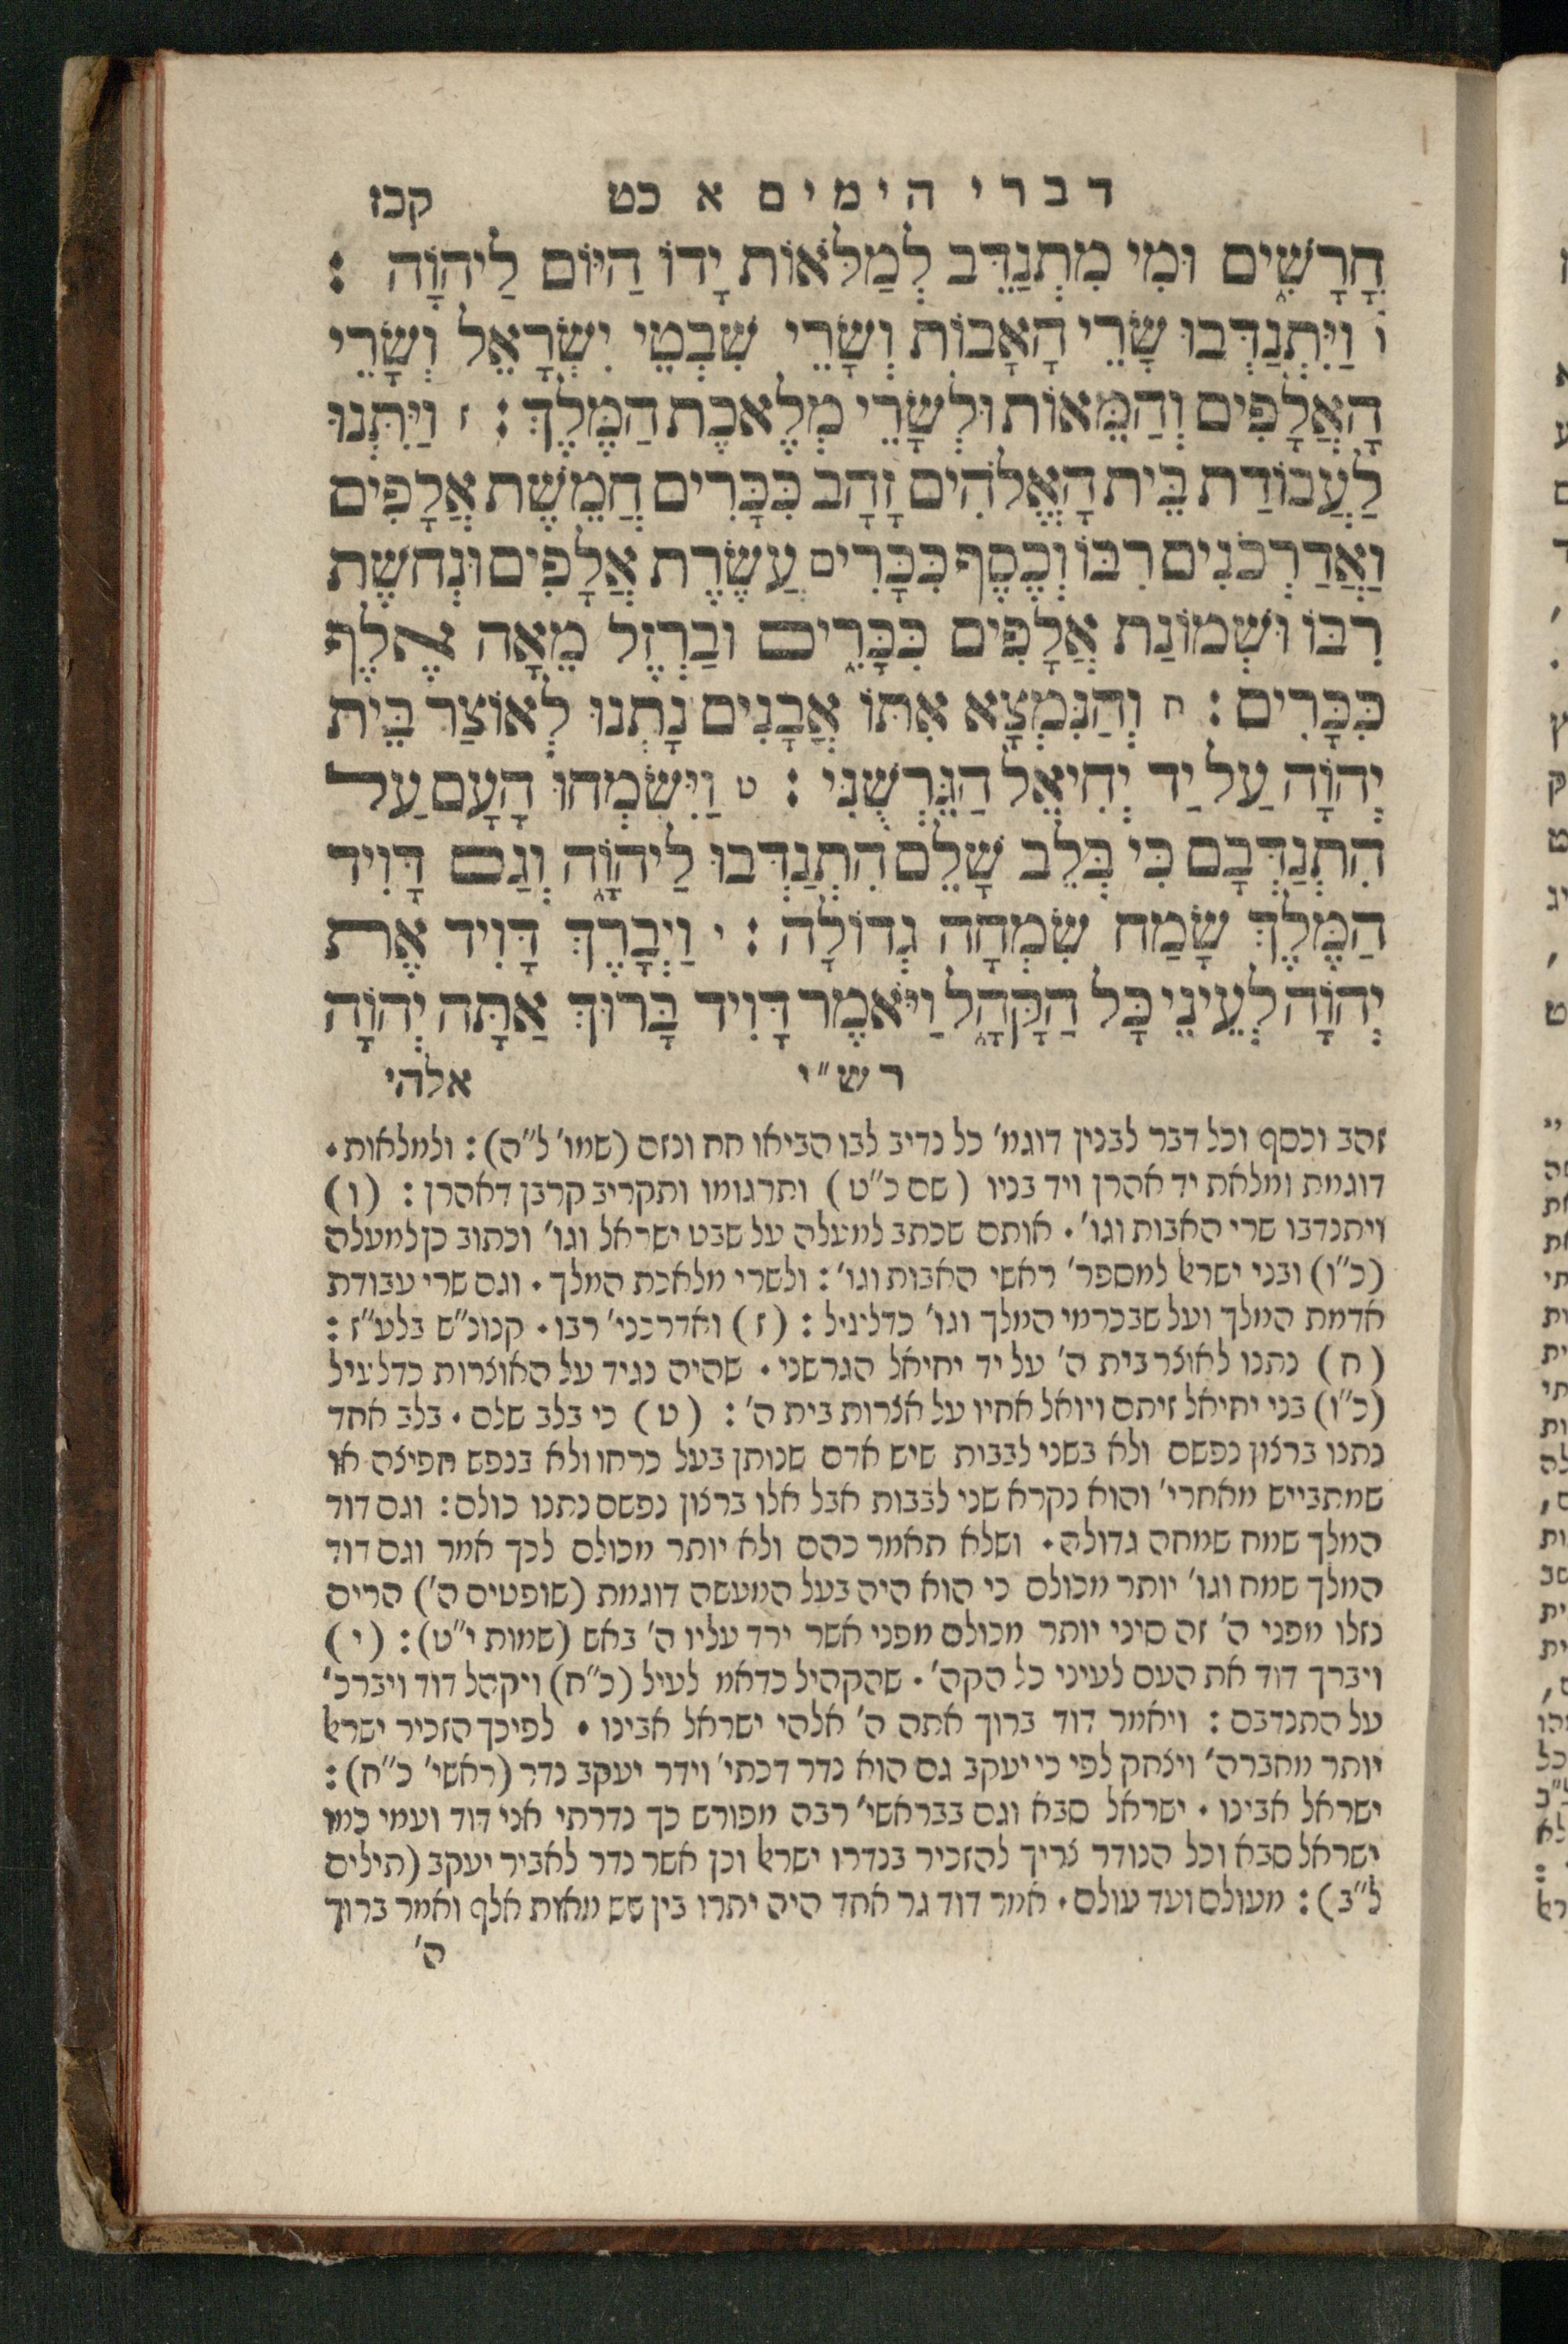 דברי הימים א כט קכז
חָרָשִׁים וּמִי מִתְנַדֵּב לְמַלֹּאות יָדוֹ הַיּוֹם לַיהוָֹה :
ו וַיִּתְנַדְּבוּ שָׂרֵי הָאָבוֹת וְשָׂרֵי שִׁבְטֵי יִשְׂרָאֵל וְשָׂרֵי
הָאֲלָפִים וְהַמֵּאוֹת וּלְשָׂרֵי מְלֶאכֶת הַמֶּלֶךְ : ז וַיִּתְּנוּ
לַעֲבוֹדַת בֵּית הָאֱלֹהִים זָהָב כִּכָּרִים חֲמֵשֶׁת אֲלָפִים
וַאֲדַרְכֹנִים רִבּוֹ וְכֶסֶף כִּכָּרִים עֲשֶׂרֶת אֲלָפִים וּנְחשֶׁת
רִבּוֹ וּשְׁמוֹנַת אֲלָפִים כִּכָּרִים וּבַרְזֶל מֵאָה אֶלֶף
כִּכָּרִים : ח וְהַנִּמְצָא אִתּוֹ אֲבָנִים נָתְנוּ לְאוֹצַר בֵּית
יְהוָֹה עַל יַד יְחִיאֵל הַגֵּרְשֻׁנִּי : ט וַיִּשְׂמְחוּ הָעָם עַל
הִתְנַדְּבָם כִּי בְּלֵב שָׁלֵם הִתְנַדְּבוּ לַיהוָֹה וְגַם דָּוִיד
הַמֶּלֶךְ שָׂמַח שִׂמְחָה גְדוֹלָה : י וַיְבָרֶךְ דָּוִיד אֶת
יְהוָֹה לְעֵינֵי כָּל הַקָּהָל וַיֹּאמֶר דָּוִיד בָּרוּךְ אַתָּה יְהוָֹה
רש"י אלהי
זהב וכסף וכל דבר לבנין דוגמ' כל נדיב לבו הביאו חח ונזם (שמו' ל"ה) : ולמלאות •
דוגמת ומלאת יד אהרן ויד בניו (שם כ"ט) ותרגומו ותקריב קרבן דאהרן : (ו)
ויתנדבו שרי האבות וגו' • אותם שכתב למעלה על שבט ישראל וגו' וכתוב כן למעלה
(כ"ו) ובני ישראל למספר' ראשי האבות וגו' : ולשרי מלאכת המלך • וגם שרי עבודת
אדמת המלך ועל שבכרמי המלך וגו' כדלעיל : (ז) ואדרכני' רבו • קנונ"ש בלע"ז :
(ח) נתנו לאוצר בית ה' על יד יחיאל הגרשני • שהיה נגיד על האוצרות כדלעיל
(כ"ו) בני יחיאל זיתם ויואל אחיו על אצרות בית ה' : (ט) כי בלב שלם • בלב אחד
נתנו ברצון נפשם ולא בשני לבבות שיש אדם שנותן בעל כרחו ולא בנפש חפיצה או
שמתבייש מאחרי' והוא נקרא שני לבבות אבל אלו ברצון נפשם נתנו כולם : וגם דוד
המלך שמח שמחה גדולה • ושלא תאמר כהם ולא יותר מכולם לכך אמר וגם דוד
המלך שמח וגו' יותר מכולם כי הוא היה בעל המעשה דוגמת (שופטים ה') הרים
נזלו מפני ה' זה סיני יותר מכולם מפני אשר ירד עליו ה' באש (שמות י"ט) : (י)
ויברך דוד את העם לעיני כל הקה' • שהקהיל כדאמ לעיל (כ"ח) ויקהל דוד ויברכ'
על התנדבם : ויאמר דוד ברוך אתה ה' אלהי ישראל אבינו • לפיכך הזכיר ישראל
יותר מאברה' ויצחק לפי כי יעקב גם הוא נדר דכתי' וידר יעקב נדר (ראשי' כ"ח) :
ישראל אבינו • ישראל סבא וגם בבראשי' רבה מפורש כך נדרתי אני דוד ועמי כמו
ישראל סבא וכל הנודר צריך להזכיר בנדרו ישראל וכן אשר נדר לאביר יעקב (תילים
ל"ב) : מעולם ועד עולם • אמר דוד גר אחד היה יתרו בין שש מאות אלף ואמר ברוך
ה'